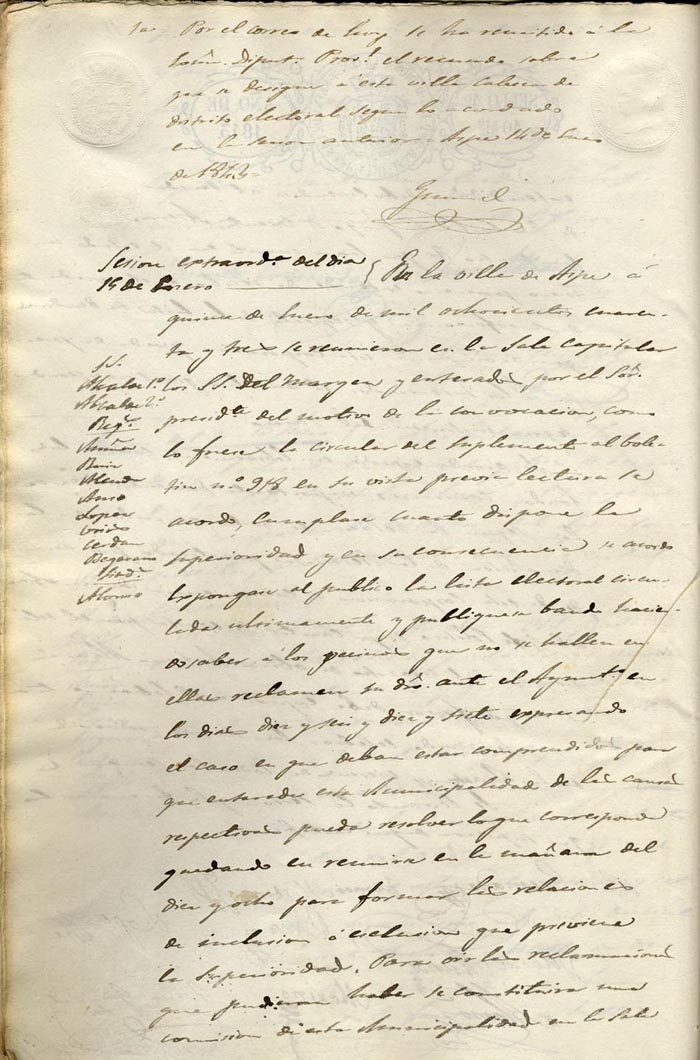 Por el correo de hoy se ha remitido á la
Exma. Diput.n Prov.l el recuerdo sobre
que se designe a esta villa Cabeza de
distrito electoral segun lo acordado
en la sesion anterior. Aspe 14 de Enero
de 1843=
Sesion extraord.a del dia
15 de Enero
En la villa de Aspe á
quince de Enero de mil ochocientos cuaren-
ta y tres se reunieron en la Sala Capitular
los SS. Del Margen y enterados por el Sor.
presid.te del motivo de la convocacion, como
lo fuese la circular del suplemento al bole-
tin n.o 978 en su vista previa lectura se
acordó, Cumplase cuanto dispone la
Superioridad y en su consecuencia se acordó
Expongase al publico la lista electoral circu-
lada ultimamente y publiquese bando hacien-
do saber á los vecinos que no se hallen en
ellas reclamen su dro. ante el Ayunt.o en
los dias diez y seis y diez y siete expresando
el caso en que deban estar comprendidos para
que enterada esta Municipalidad de las causas
respectivas pueda resolver lo que corresponda
quedando en reunirse en la mañana del
diez y ocho para formar las relaciones
de inclusion ó esclusion que previene
la Superioridad. Para oir las reclamaciones
que pudieran haber se constituira una
comision de esta Municipalidad en la Sala
SS.
Alcalde 1.o
Alcalde 2.o
Reg.s
Almodr
Cerdan
Lopez
Begarano
Sind.o
Alonso